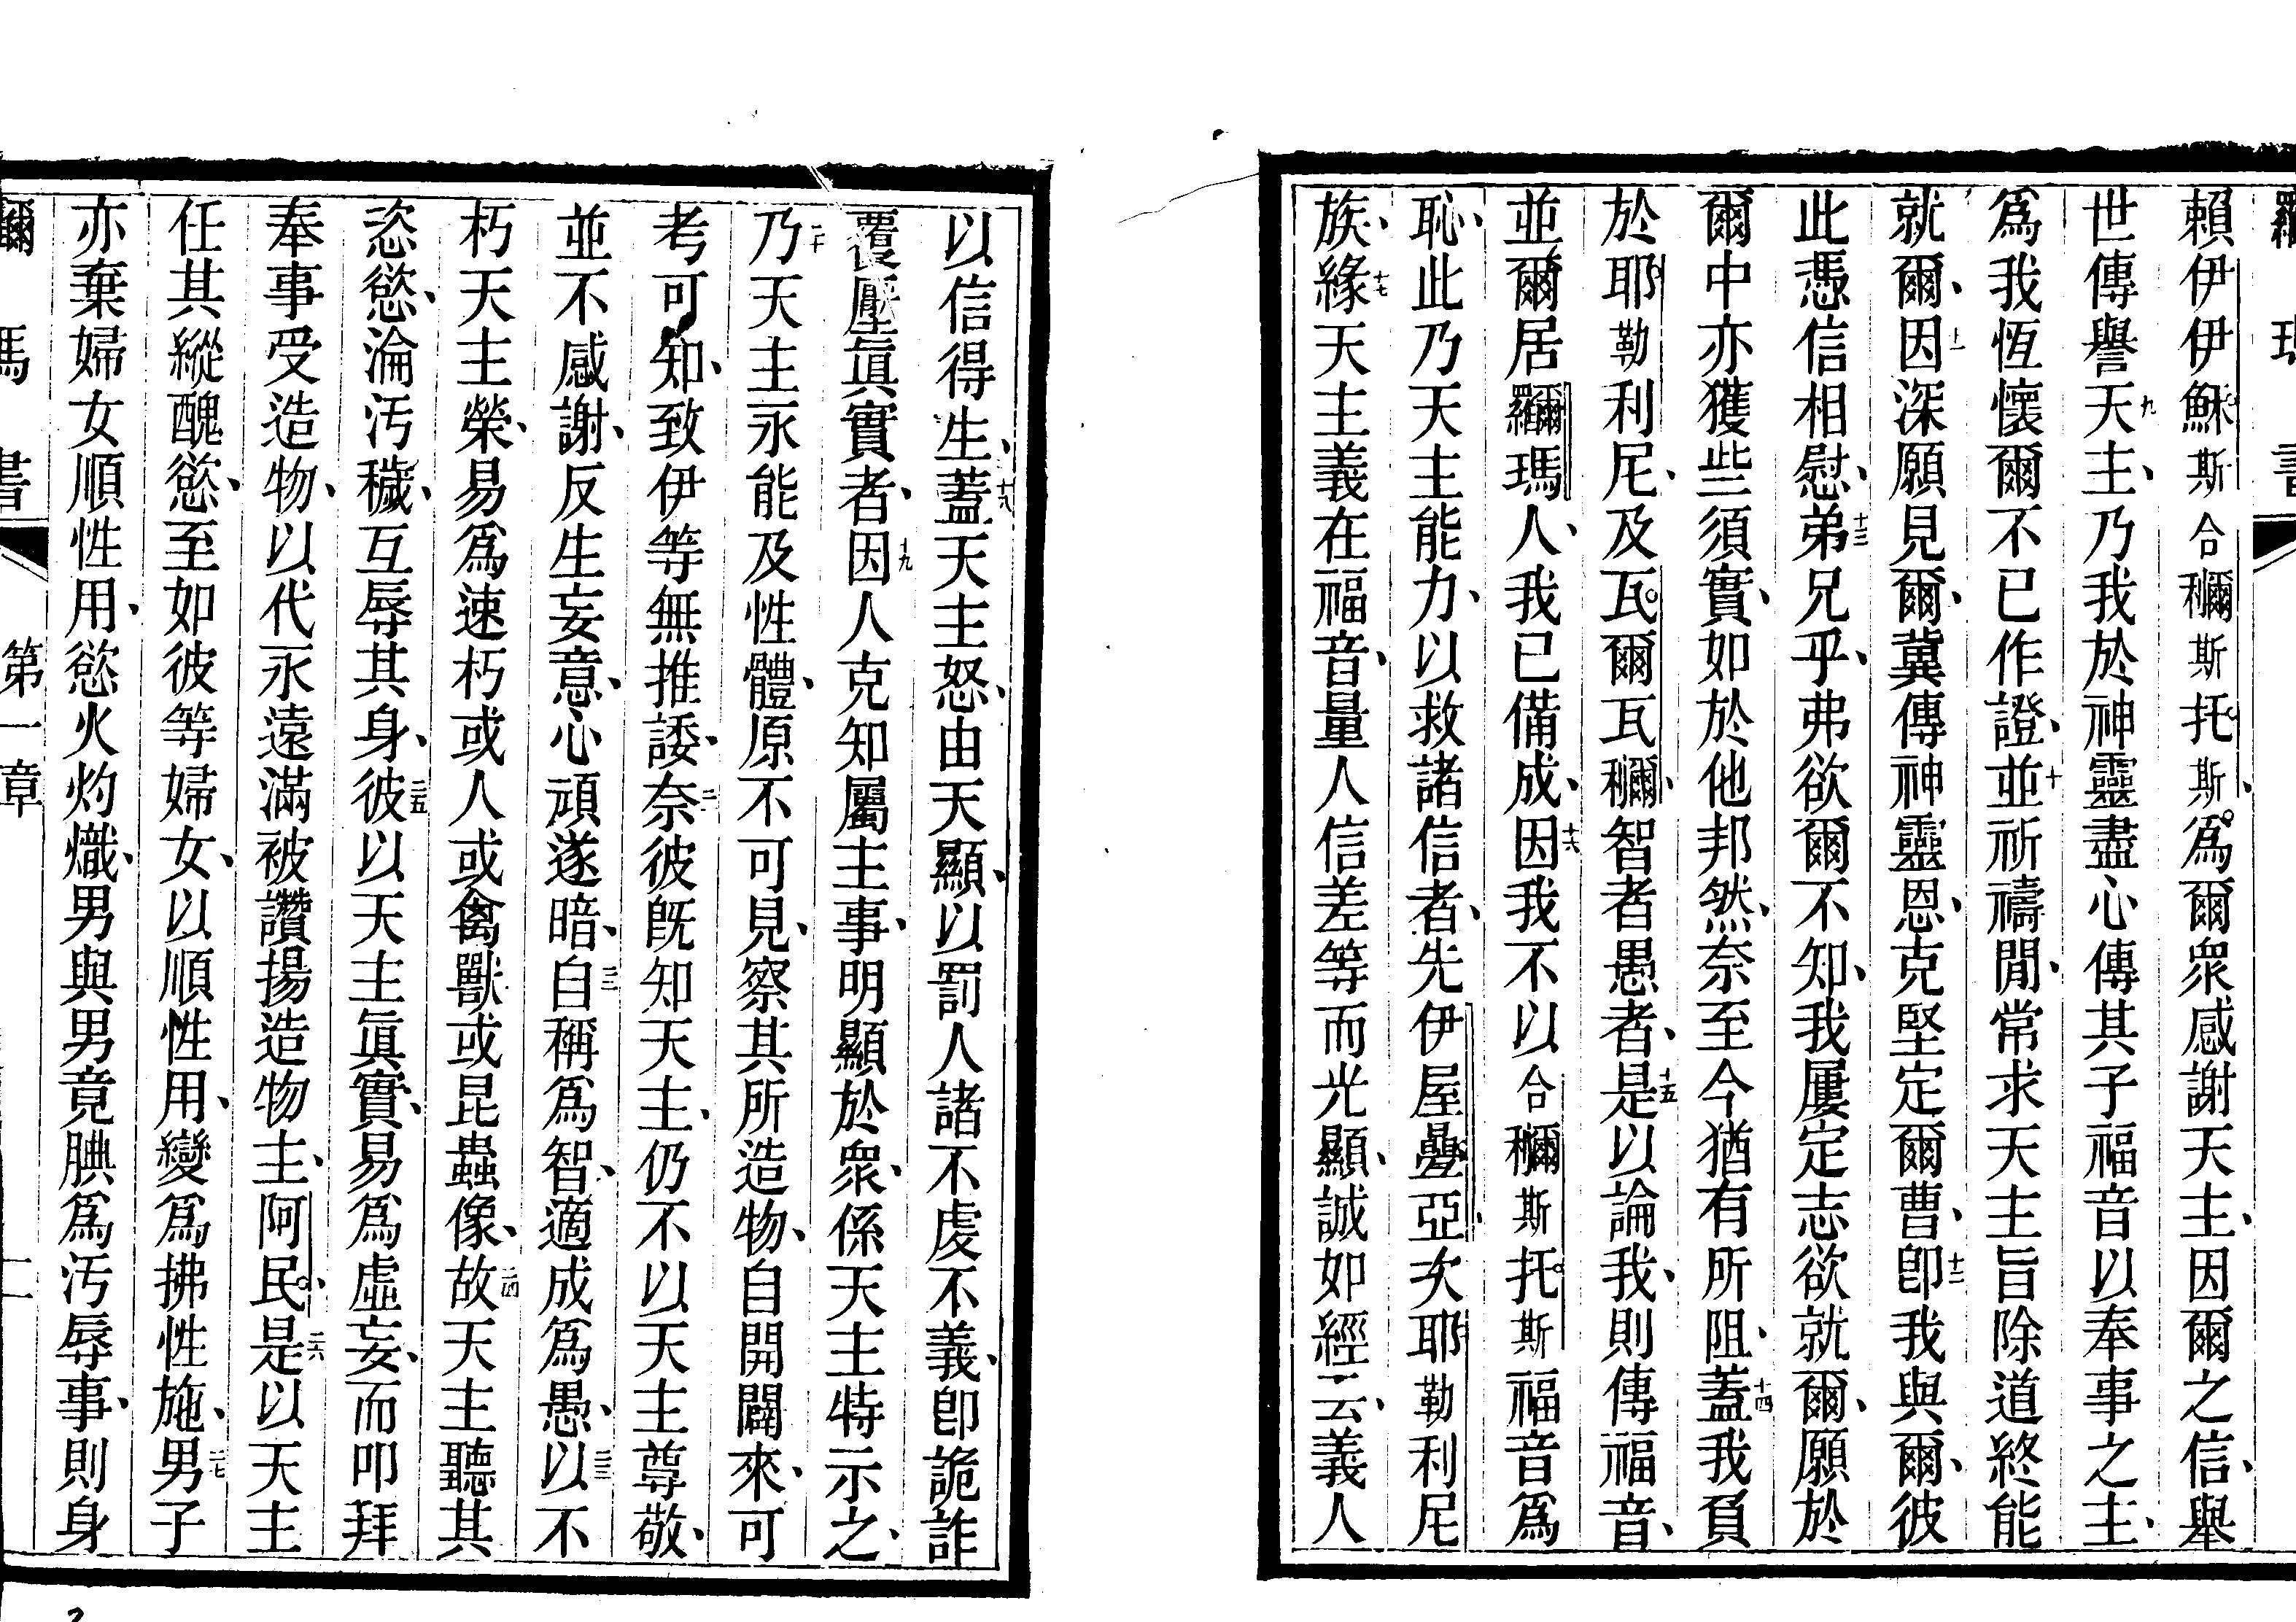 賴伊伊穌斯合𥡴斯托斯爲爾衆感謝天主、因爾之信、舉
世傳譽九天主、乃我於神靈盡心傳其子福音以奉事之主、
爲我恆懷爾不已作證、十並祈禱閒、常求天主旨除道終能
就爾、十一因深願見爾、冀傳神靈恩、克堅定爾曹、十二卽我與爾、彼
此憑信相慰、十三弟兄乎、弗欲爾不知、我屢定志欲就爾、願於
爾中亦獲些須實、如於他邦然、奈至今猶有所阻、十四蓋我負
於耶勒利尼、及瓦爾瓦𥡴、智者愚者、十五是以論我、則傳福音、
並爾居羅瑪人、我已備成、十六因我不以合𥡴斯托斯福音爲
恥、此乃天主能力、以救諸信者、先伊屋疊亞、次耶勒利尼
族、十七緣天主義在福音、量人信差等而光顯、誠如經云、義人
以信得生、十八蓋天主怒、由天顯、以罰人諸不虔不義、卽詭詐
覆壓眞實者、十九因人克知屬主事、明顯於衆、係天主特示之、
二十乃天主永能及性體、原不可見、察其所造物、自開闢來、可
考可知、致伊等無推諉、二一奈彼旣知天主、仍不以天主尊敬、
並不感謝、反生妄意、心頑遂暗、二二自稱爲智、適成爲愚、二三以不
朽天主榮、易爲速朽或人或禽獸或昆蟲像、二四故天主聽其
恣慾、淪汚穢、互辱其身、二五彼以天主眞實、易爲虛妄、而叩拜
奉事受造物、以代永遠滿被讚揚造物主、阿民、二六是以天主
任其縱醜慾、至如彼等婦女、以順性用、變爲拂性施、二七男子
亦棄婦女順性用、慾火灼熾、男與男竟腆爲汚辱事、則身
瑪書
第一章
二